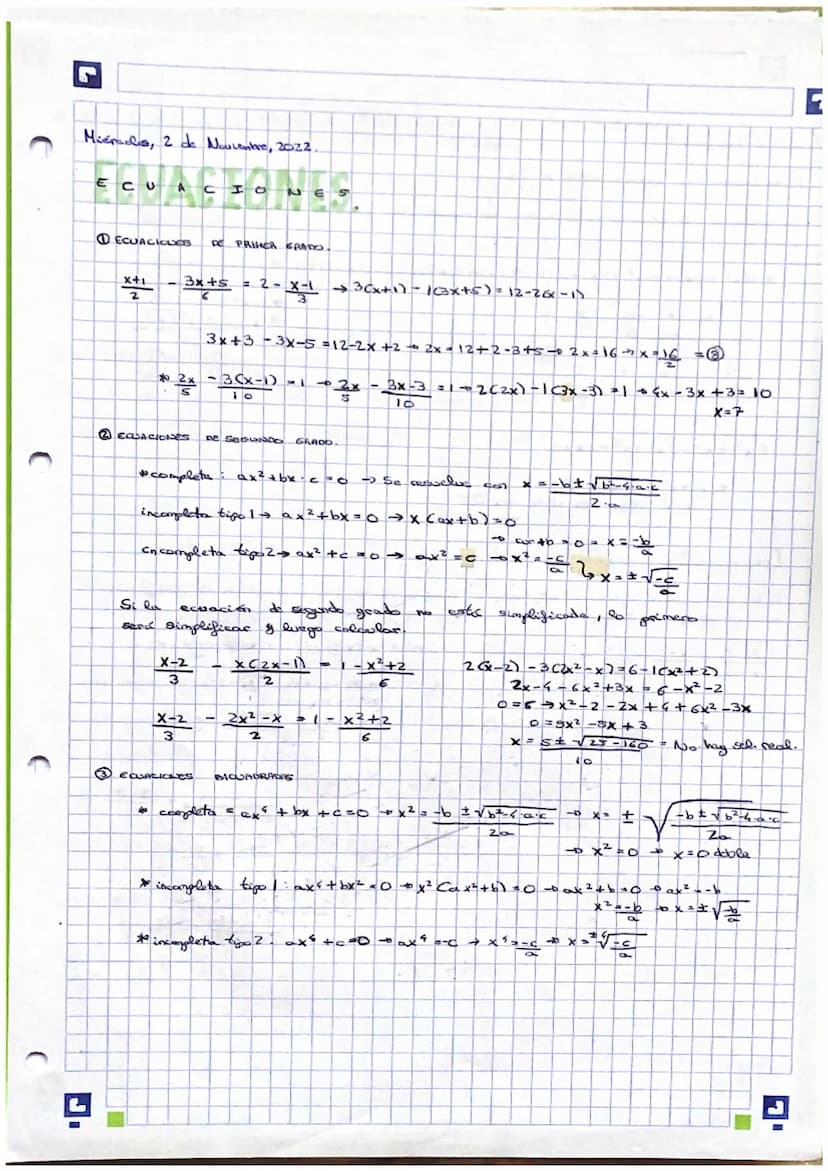 Miércoles, 2 de Noviembre, 2022.
ECUACIONES.
① ECUACIONES DE PRIMER GRADO.
x+1/2 - 3x+5/6 = 2 - x-1/3 → 3(x+1) - 1(3x+5) = 12-2(x-1)
3x+3 - 3x-5 = 12-2x+2 → 2x = 12+2-3+5 → 2x=16 → x=16/2 = ⑧
* 2x/5 - 3(x-1)/10 = 1 → 2x/5 - 3x-3/10 = 1 → 2(2x) - 1(3x-3) = 1 → 4x - 3x + 3 = 10
x=7
② ECUACIONES DE SEGUNDO GRADO.
*completa: ax²+bx+c=0 → Se resuelve con x = -b±√b²-4·a·c/2·a
incompleta tipo 1 → ax²+bx=0 → x(ax+b)=0
→ ax+b=0 = x = -b/a
incompleta tipo 2 → ax²+c=0 → ax²=c → x² = -c/a ↳ x=±√-c/a
Si la ecuación de segundo grado no está simplificada, lo primero
será simplificar y luego calcular.
x-2/3 - x(2x-1)/2 = 1 - x²+2/6 2(x-2) - 3(2x²-x) = 6-1(x²+2)
2x-4 - 6x²+3x = 6-x²-2
0=6 → x²-2-2x+4+6x²-3x
x-2/3 - 2x²-x/2 = 1 - x²+2/6 0=5x²-5x+3
x = 5±√25-160/10 = No hay sol. real.
③ ECUACIONES BICUADRADAS
* completa = ax⁴+bx+c=0 → x² = -b±√b²-4·a·c/2a → x = ± √-b±√b²-4·a·c/2a
→ x²=0 → x=0 doble
* incompleta tipo 1: ax⁴+bx²=0 → x²(ax²+b)=0 → ax²+b=0 → ax²=-b
x²=-b/a → x=±√-b/a
* incompleta tipo 2: ax⁴+c=0 → ax⁴=-c → x⁴=-c/a → x=±⁴√-c/a